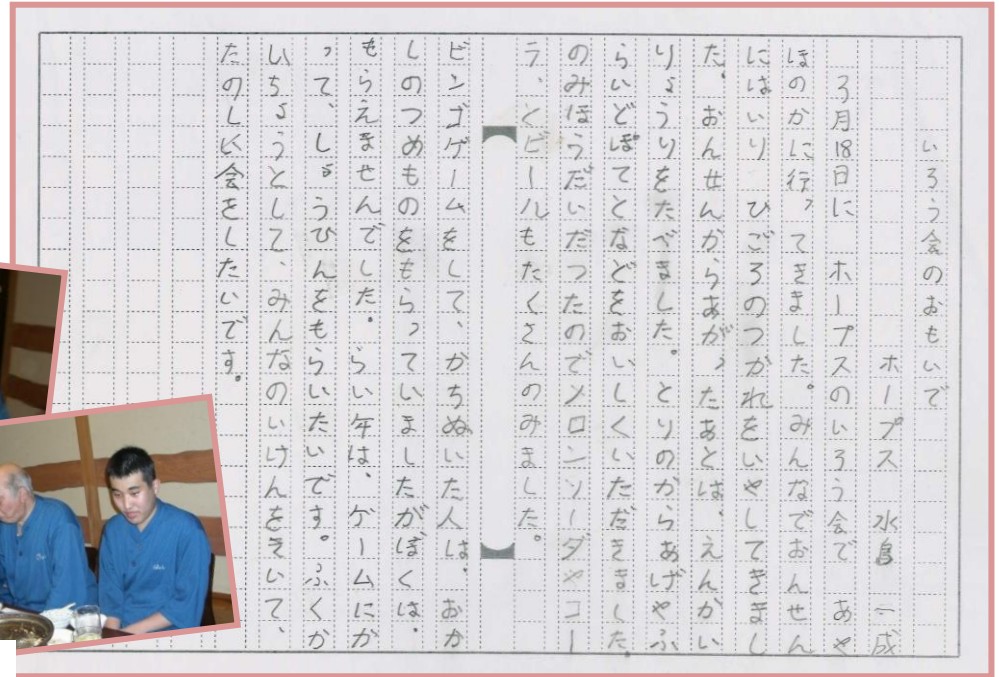 いろう会のおもいで
ホープス 水島 一成
3月18日に ホープスのいろう会で あや
ほのかに行ってきました。みんなでおんせん
にはいり ひごろのつかれをいやしてきまし
た。おんせんからあがったあとは、えんかい
りょうりをたべました。とりのからあげやふ
らいどぽてとなどをおいしくいただきました。
のみほうだいだったのでメロンソーダやコー
ラ、とビールもたくさんのみました。
ビンゴゲームをして、かちぬいた人は、おか
しのつめものをもらっていましたがぼくは、
もらえませんでした。らい年は、ゲームにか
って、しょうひんをもらいたいです。ふくか
いちょうとして、みんなのいけんをきいて、
たのしい会をしたいです。